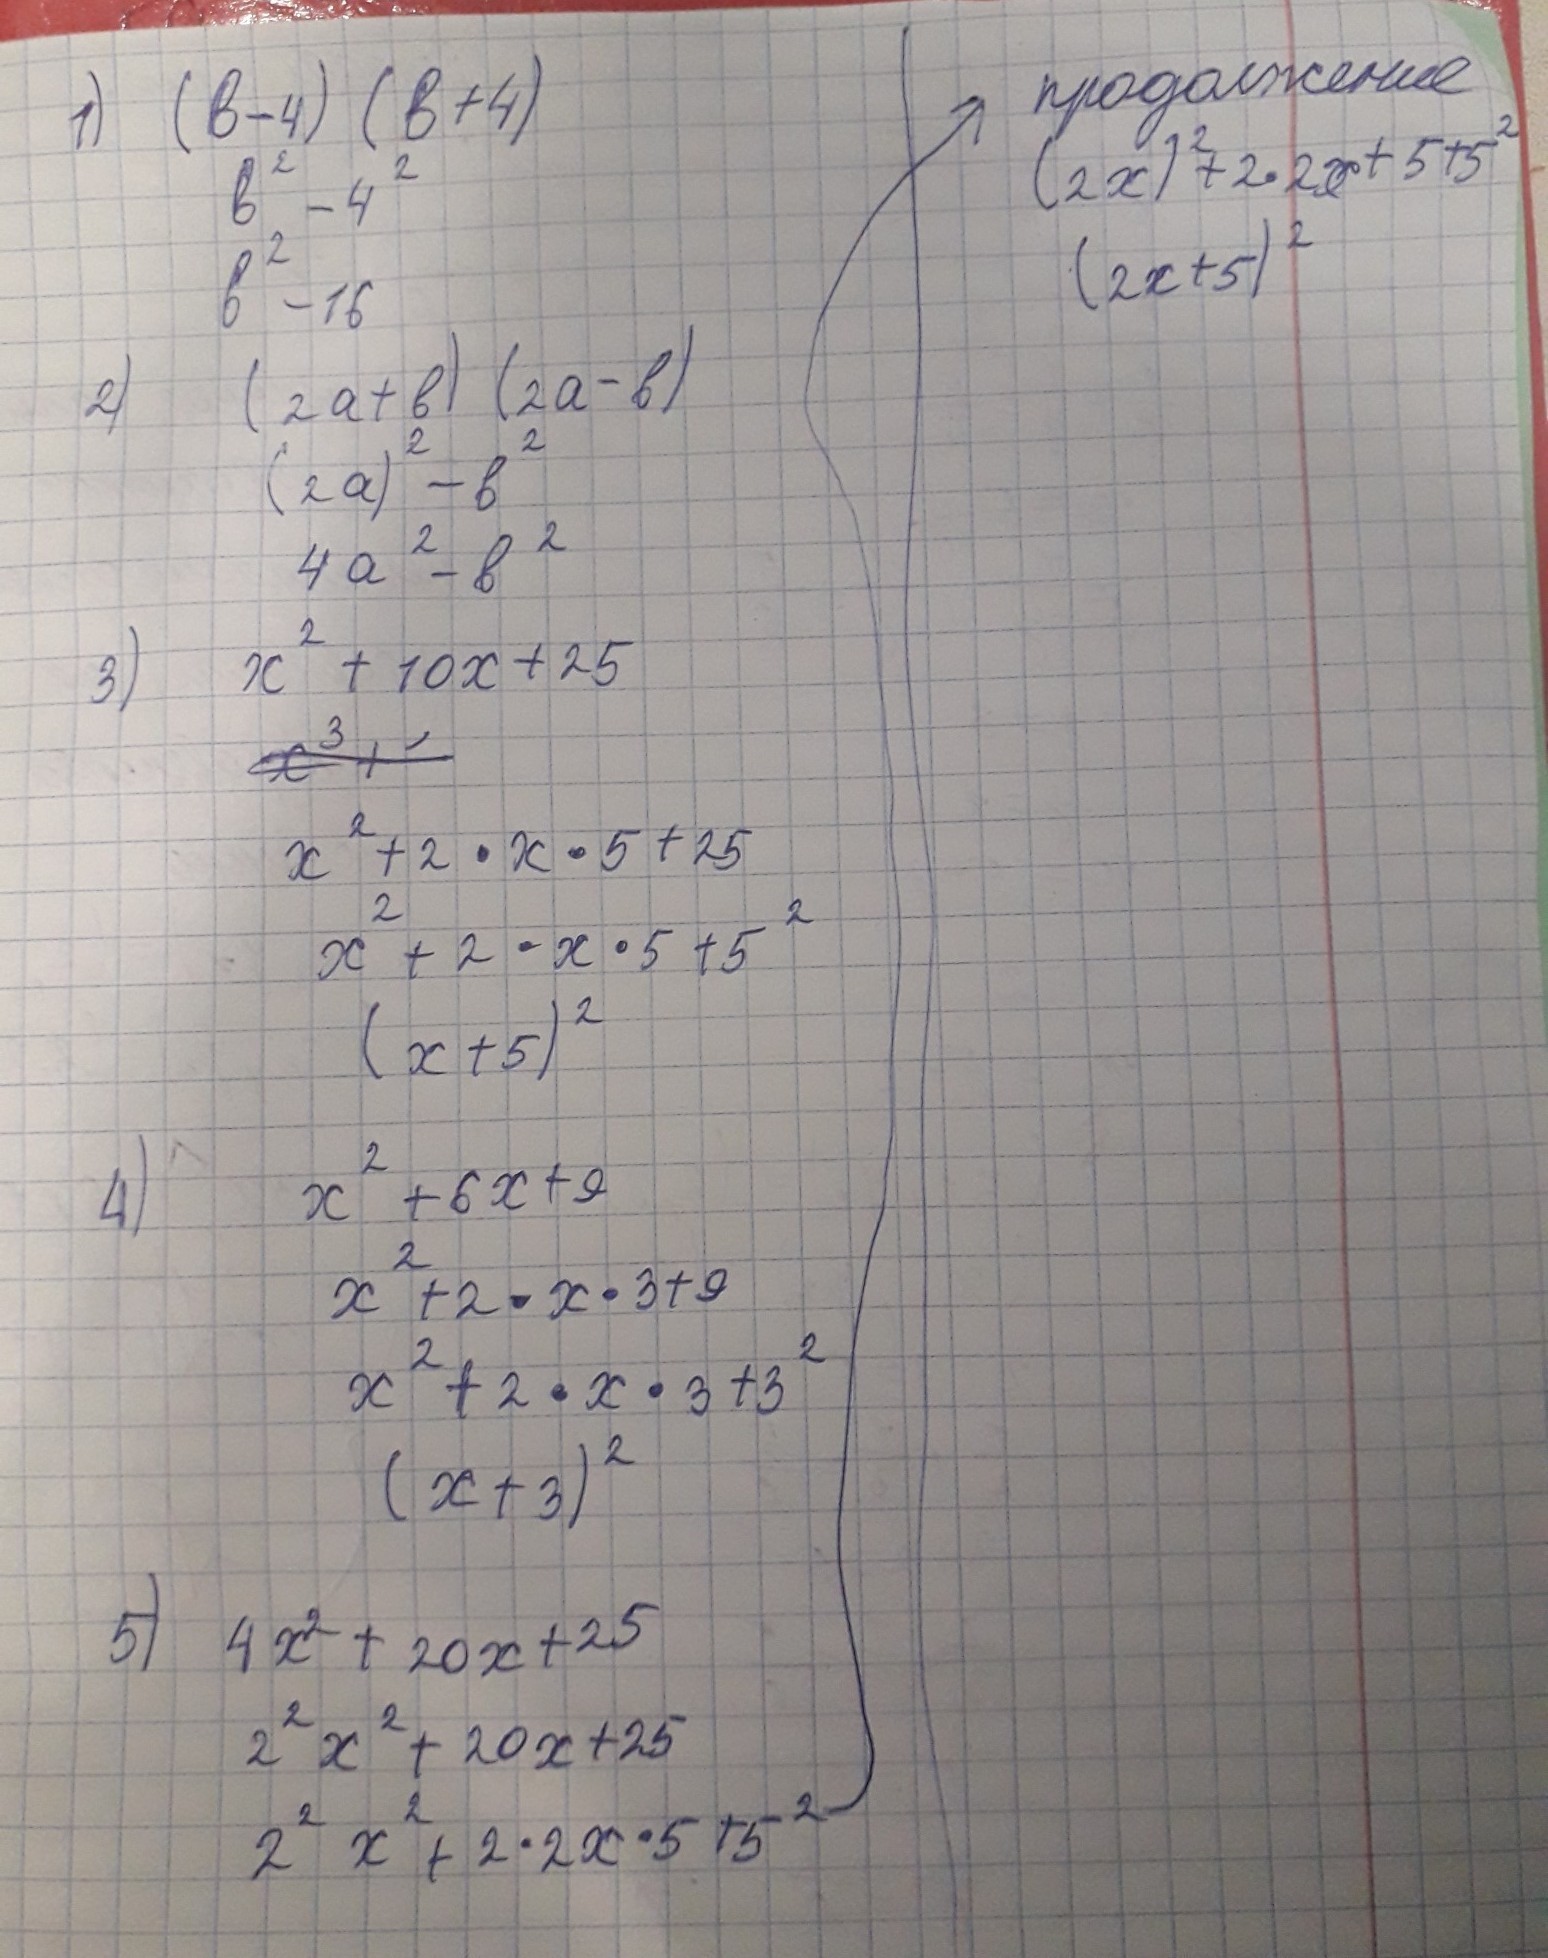 1) (в-4) (в+4)
в² - 4²
в² - 16
2) (2а+в) (2а-в)
(2а)² - в²
4а² - в²
3) x² + 10x + 25
x³ + 
x² + 2 • x • 5 + 25
x² + 2 • x • 5 + 5²
(x+5)²
4) x² + 6x + 9
x² + 2 • x • 3 + 9
x² + 2 • x • 3 + 3²
(x+3)²
5) 4x² + 20x + 25
2² x² + 20x + 25
2² x² + 2 • 2x • 5 + 5²
продолжение
(2x)² + 2 • 2x + 5 + 5²
(2x+5)²